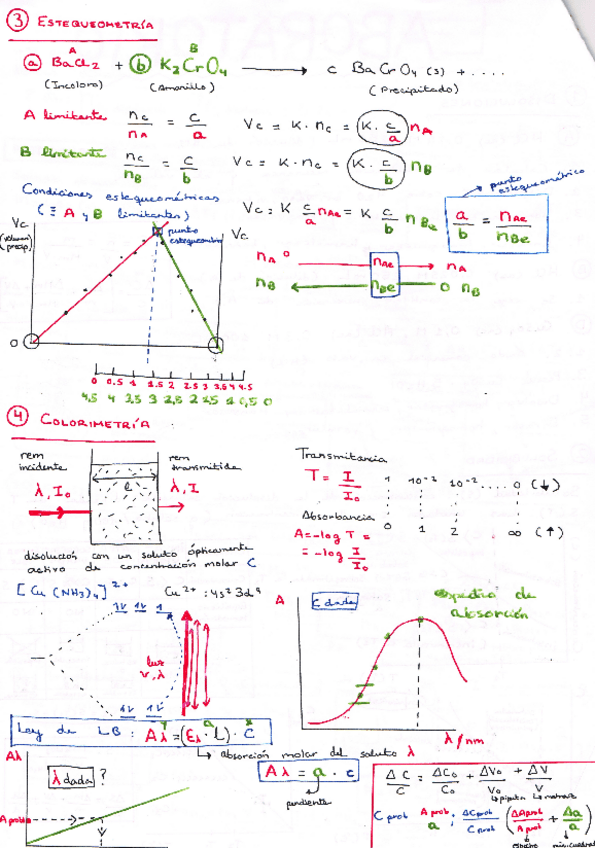 ③ ESTEQUEOMETRÍA
A B
ⓐ BaCl2 + ⓑ K2CrO4 → c BaCrO4 (s) + ....
(Incoloro) (Amarillo) (Precipitado)
A limitante nc/nA = c/a Vc = K · nc = K · c/a nA
B limitante nc/nB = c/b Vc = K · nc = K · c/b nB
Condiciones estequeométricas
(≡ A y B limitantes)
Vc = K c/a nAe = K c/b nBe
a/b = nAe/nBe
punto estequeométrico
Vc
(volumen precip)
punto estequeométrico
Vc
nA 0 nAe nA
nB nBe 0 nB
0
0 0.5 1 1.5 2 2.5 3 3.5 4 4.5
4,5 4 3,5 3 2,5 2 1,5 1 0,5 0
④ COLORIMETRÍA
rem incidente
rem transmitida
λ, I0
l
λ, I
disolución con un soluto ópticamente
activo de concentración molar C
Transmitancia
T = I/I0 1 10⁻² 10⁻² .... 0 (↓)
Absorbancia
A = -log T = 0 1 2 ∞ (↑)
= -log I/I0
[Cu (NH3)4]²⁺ Cu²⁺ : 4s² 3d⁹
luz
ν, λ
A
C dada
espectro de
absorción
λ/nm
Ley de LB : Aλ = (Ελ · L) · C
absorción molar del soluto λ
Aλ
λ dada ?
A prob
Aλ = a · c
pendiente
ΔC/C = ΔC0/C0 + ΔV0/V0 + ΔV/V
pipeta matraz
C prob A prob/a ; ΔCprob/Cprob (ΔAprob/Aprob + Δa/a)